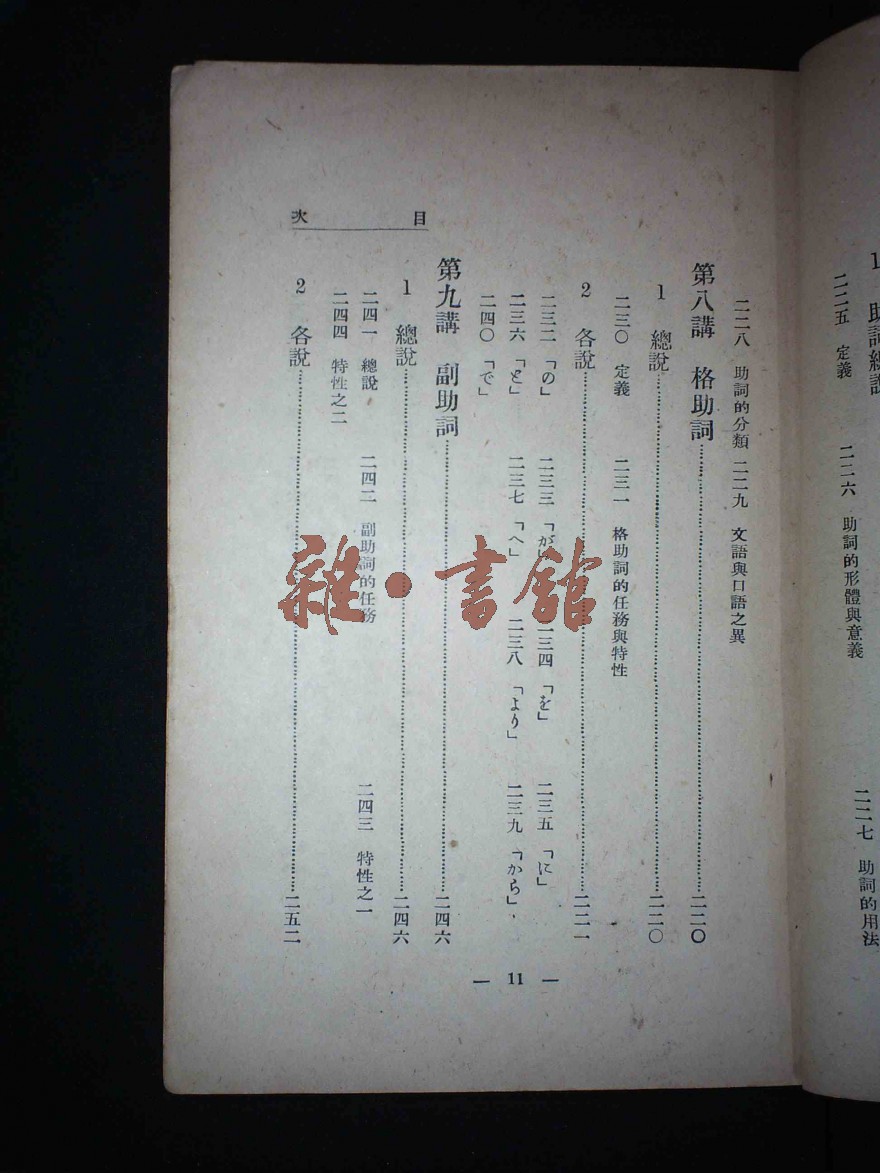 1 助詞總說
二二五 定義 二二六 助詞的形體與意義 二二七 助詞的用法
目次
二二八 助詞的分類 二二九 文語與口語之異
第八講 格助詞……二二〇
1 總說……二二〇
二三〇 定義 二三一 格助詞的任務與特性
2 各說……二二一
二三二 「の」 二三三 「が」 二三四 「を」 二三五 「に」
二三六 「と」 二三七 「へ」 二三八 「より」 二三九 「から」
二四〇 「で」
第九講 副助詞……二四六
1 總說……二四六
二四一 總說 二四二 副助詞的任務 二四三 特性之一
二四四 特性之二
2 各說……二五二
— 11 —
雜·書館